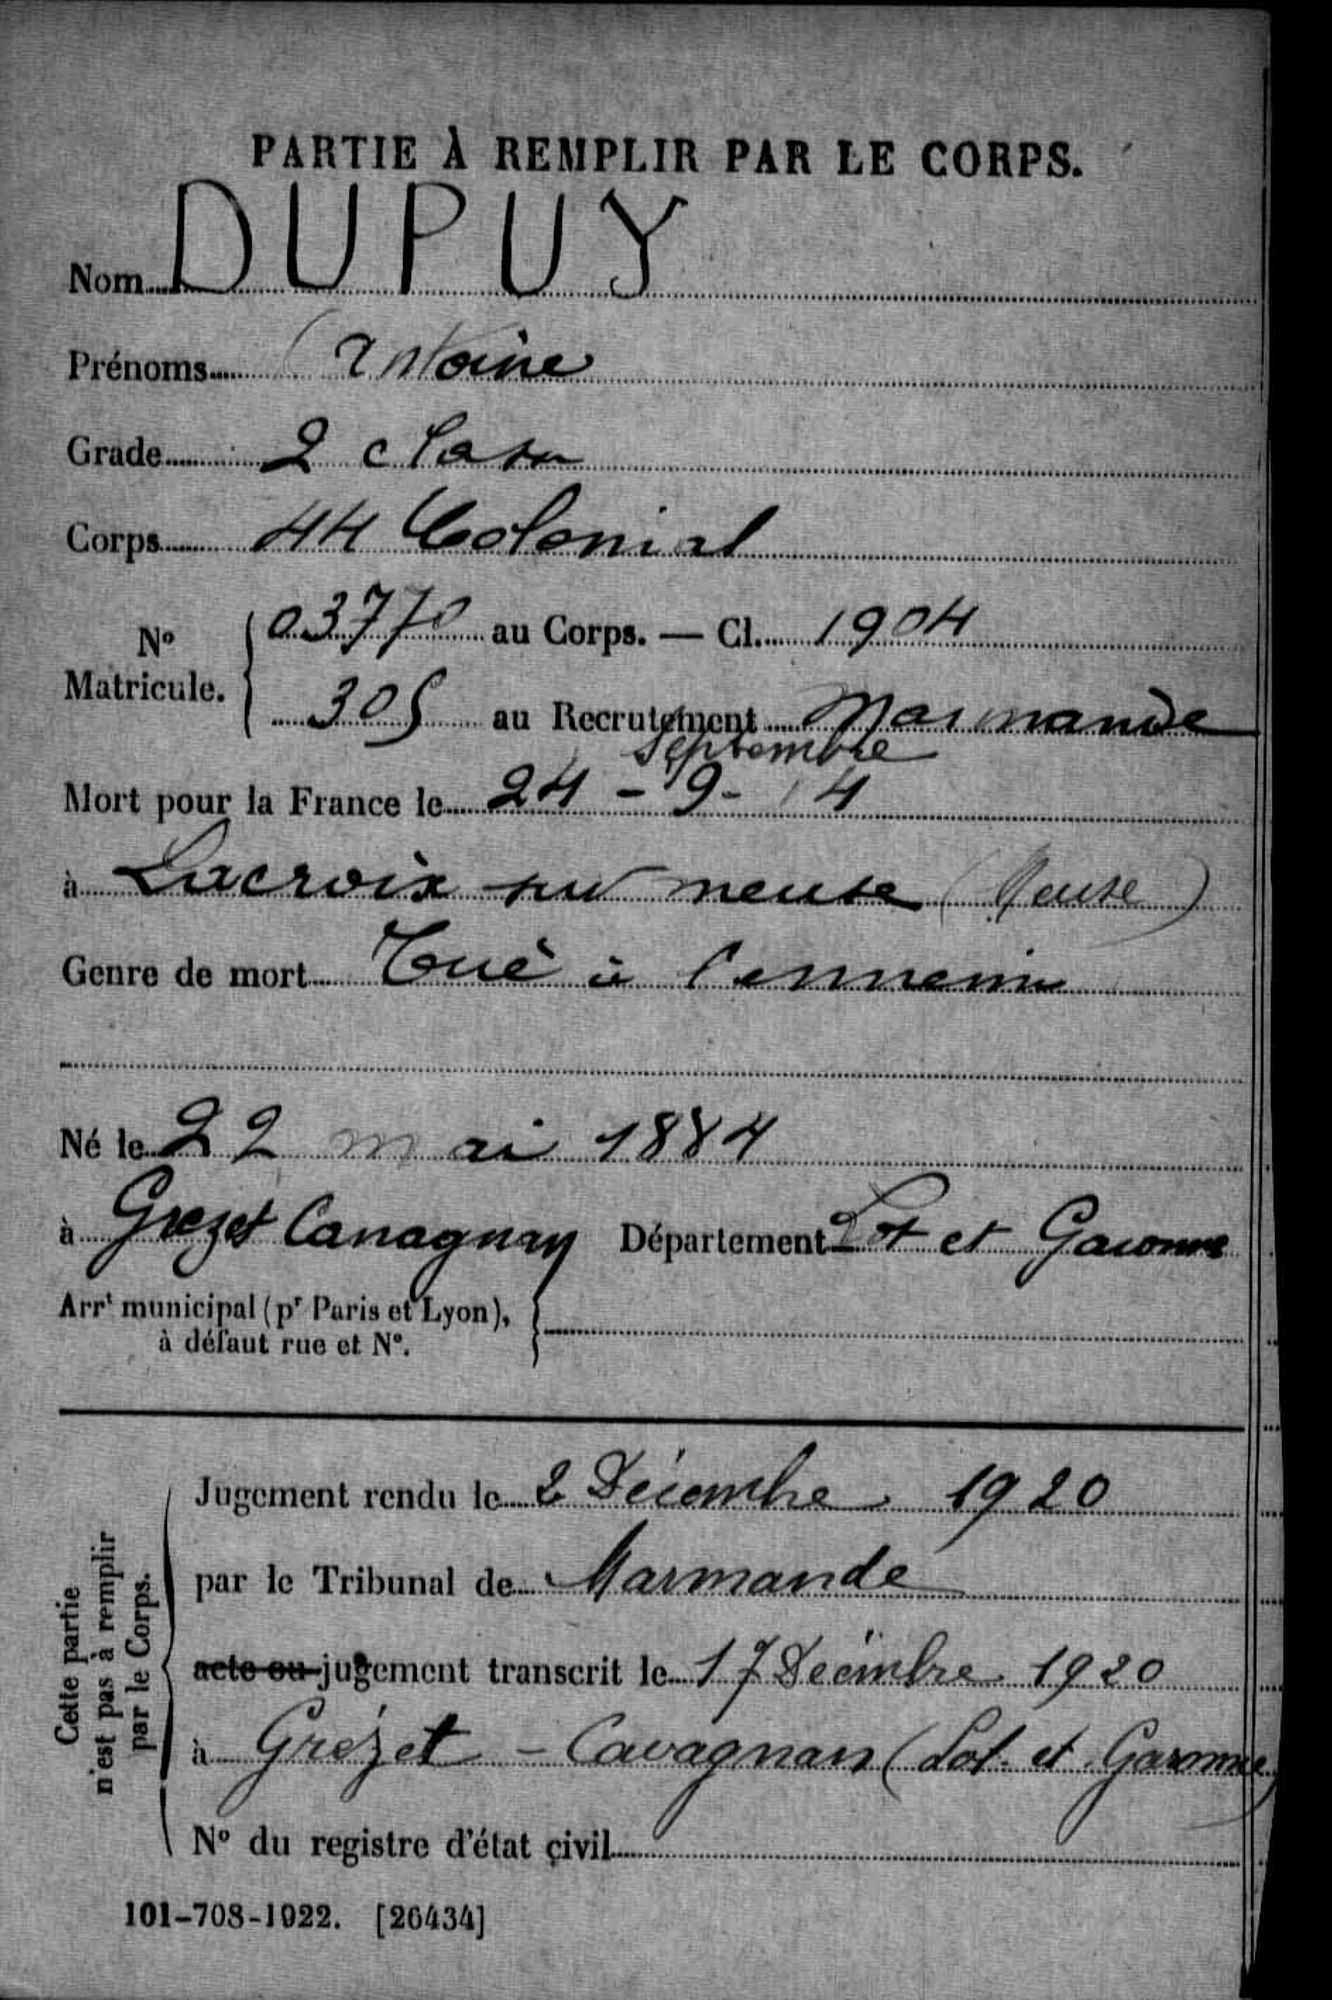 PARTIE À REMPLIR PAR LE CORPS.
Nom DUPUY
Prénoms Antoine
Grade 2 classe
Corps 44 Colonial
N° Matricule. { 03770 au Corps. — Cl. 1904
305 au Recrutement Marmande
Septembre
Mort pour la France le 24 - 9 - 14
à Lacroix sur meuse (Meuse)
Genre de mort Tué à l'ennemi
Né le 22 mai 1884
à Grezet Canagnan Département Lot et Garonne
Arrt municipal (pr Paris et Lyon),
à défaut rue et N°.
Jugement rendu le 2 Décembre 1920
par le Tribunal de Marmande
acte ou jugement transcrit le 17 Décembre 1920
à Grézet - Cavagnan (Lot et Garonne)
N° du registre d'état civil
Cette partie
n'est pas à remplir
par le Corps.
101-708-1922. [26434]